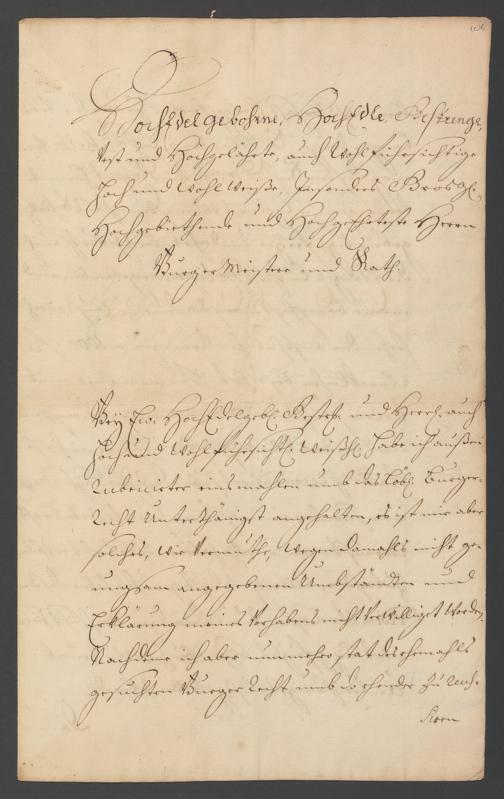 HochEdelgebohrne, HochEdle, Bestrenge,
Vest und Hochgelährte, auch Wohlfürsichtige
Hoch und Wohl Weiße, Insonders
Hochgebiethende und HochgeEhrteste Herrn
Burger Meister und Rath.
Bey Ew. HochEdelgeb. Gestr. und Herrl. auch
Hoch und Wohlfürsicht. Weißh. habe ich außen
einsmahlen umb das Löbl. Burger-
Recht Unterthänigst angehalten, es ist mir aber
solches, wie Vermuthe, wegen damahls nicht ge-
nungsam angegebenen Umbständten und
Erklärung meines Vorhabens nicht Verwilliget worden,
Nachdeme ich aber nunmehro statt des ehemahls
gesuchten Burger Recht umb